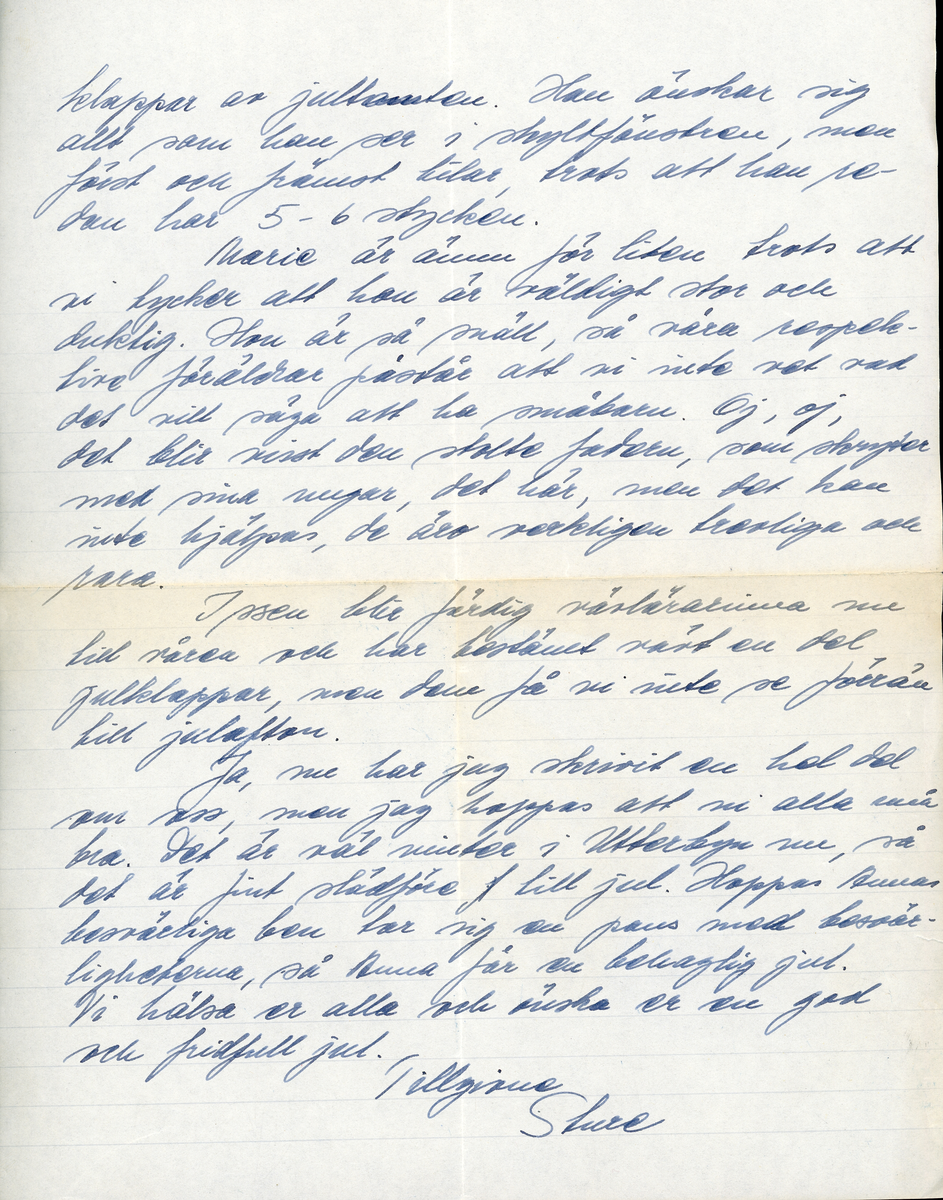 klappar av jultomten. Han önskar sig
allt som han ser i skyltfönstren, men
först och främst bilar, trots att han re-
dan har 5-6 stycken.
Marie är ännu för liten trots att
vi tycker att hon är väldigt stor och
duktig. Hon är så snäll, så våra respek-
tive föräldrar påstår att vi inte vet vad
det vill säga att ha småbarn. Oj, oj,
det blir visst den stolte fadern, som skryter
med sina ungar, det här, men det kan
inte hjälpas, de äro verkligen trevliga och
rara.
blir färdig vävlärarinna nu
till våren och har bestämt vävt en del
julklappar, men dem få vi inte se förrän
till julafton.
Ja, nu har jag skrivit en hel del
om oss, men jag hoppas att ni alla må
bra. Det är väl vinter i Utterbyn nu, så
det är fint slädföre till jul. Hoppas Annas
besvärliga ben tar sig en paus med besvär-
ligheterna, så Anna får en behaglig jul.
Vi hälsa er alla och önska er en god
och fridfull jul.
Tillgivne
Sture